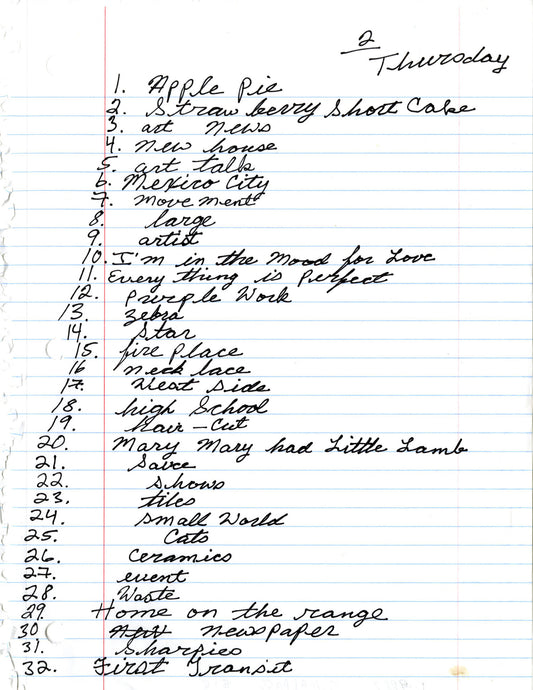 2
Thursday
1. Apple Pie
2. Strawberry Short Cake
3. art news
4. new house
5. art talk
6. Mexico City
7. Movement
8. large
9. artist
10. I'm in the Mood for Love
11. Every thing is Perfect
12. Purple Work
13. Zebra
14. Star
15. fire place
16 neck lace
17. West side
18. high School
19. Hair-Cut
20. Mary Mary had Little Lamb
21. Sauce
22. shows
23. tiles
24. Small World
25. Cats
26. Ceramics
27. event
28. Waste
29. Home on the range
30 newspaper
31. Sharpies
32. First Transit